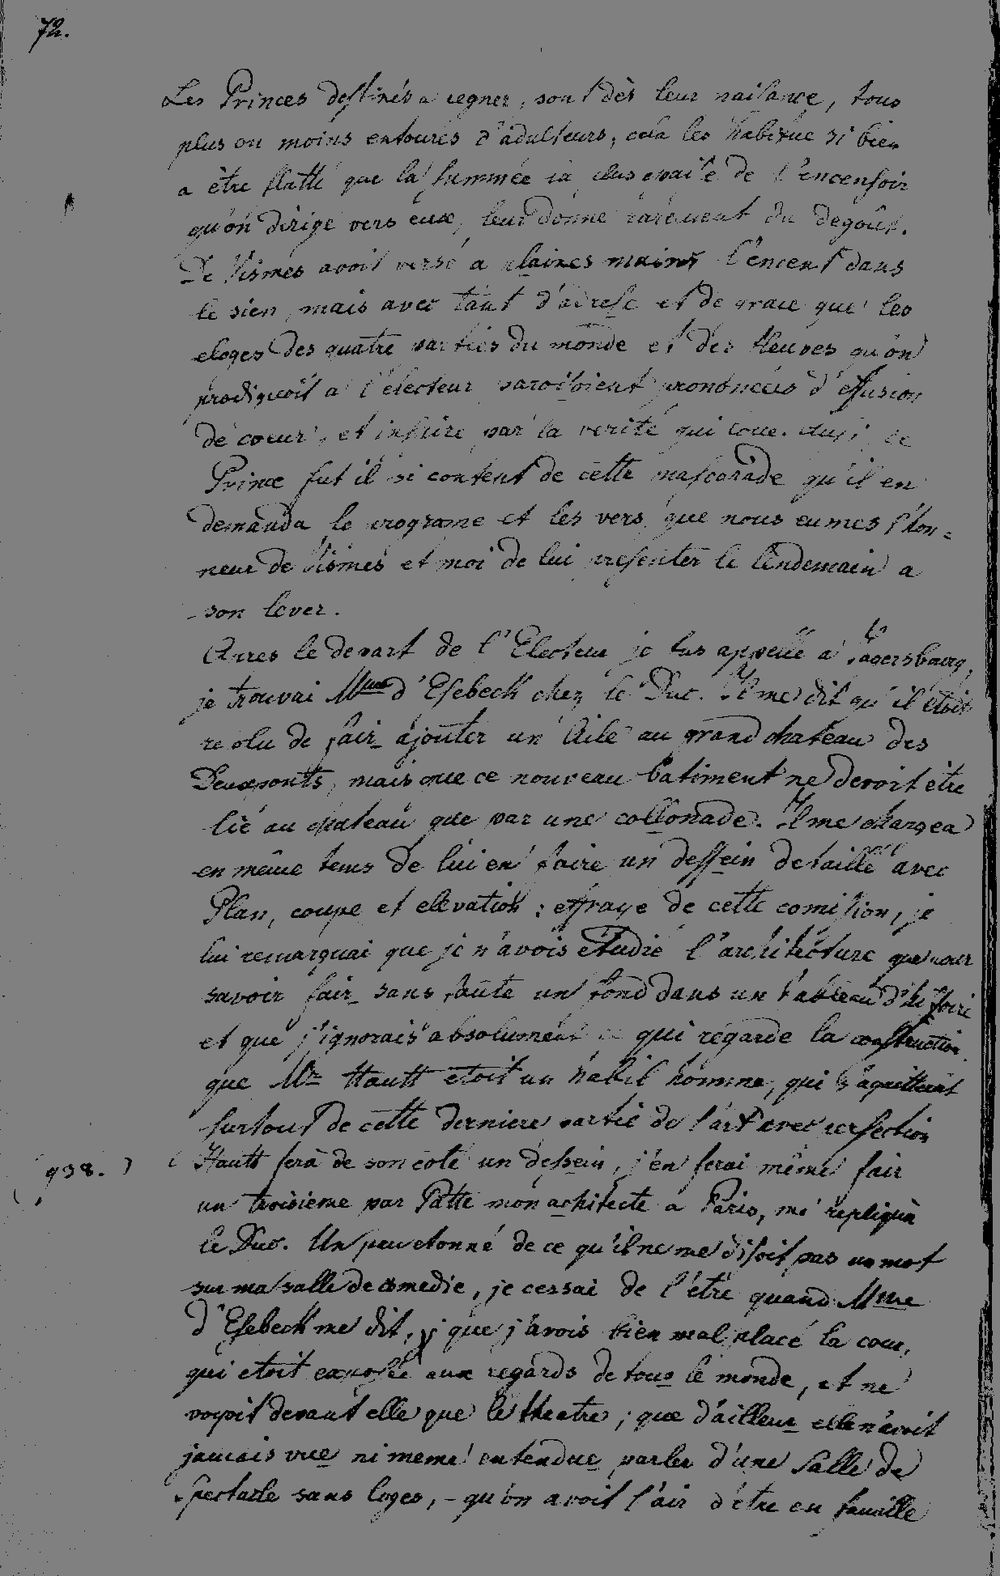 72.
Les Princes destinés a regner, sont dès leur naisance, tous
plus ou moins entourés d'adulteurs, cela les habitue si bien
a être flatté que la fummée la plus epaise de l'encensoir
qu'on dirige vers eux, leur donne rarement du degoût.
De Vismes avoit versé a plaines mains l'encens dans
le sien, mais avec tant d'adresse et de grace que les
eloges des quatre parties du monde et des fleuves qu'on
prodiguoit a l'électeur paroisoient prononcées d'effusion
de coeur, et inspiré par la verité qui loue. Ausi, ce
Prince fut il si content de cette mascarade qu'il en
demanda le programe et les vers, que nous eumes l'hon=
neur de Vismes et moi de lui presenter le lendemain a
son lever.
Apres le depart de l'Electeur je fus appellé a Jagersbourg,
je trouvai Mme d'Esebeck chez le Duc. Il me dit qu'il etoit
resolu de fair ajouter un Aile au grand chateau des
Deuxponts, mais que ce nouveau batiment ne devoit être
lié au chateau que par une collonade. Il me chargea
en même tems de lui en faire un dessein detaillé avec
Plan, coupe et elevation : effrayé de cette comission, je
lui remarquai que je n'avois étudié l'architecture que pour
savoir fair sans faute un fond dans un tableau d'histoire
et que j'ignorais absolument ce qui regarde la construction
que Mr Hautt etoit un habil homme, qui s'aquitteroit
surtout de cette derniere partie de l'art avec perfection
(938.) (Hautt fera de son coté un dessein, j'en ferai même fair
un troisieme par Patte mon architecte a Paris, me repliqua
le Duc. Un peu etonné de ce qu'il ne me disoit pas un mot
sur ma salle de comedie, je cessai de l'être quand Mme
d'Esebeck me dit, que j'avois bien mal placé la cour,
qui etoit exposée aux regards de tous le monde, et ne
voyoit devant elle que le theatre ; que d'ailleur elle n'avoit
jamais vue ni meme entendue parler d'une Salle de
Spectacle sans loges, - qu'on avoit l'air d'être en famille